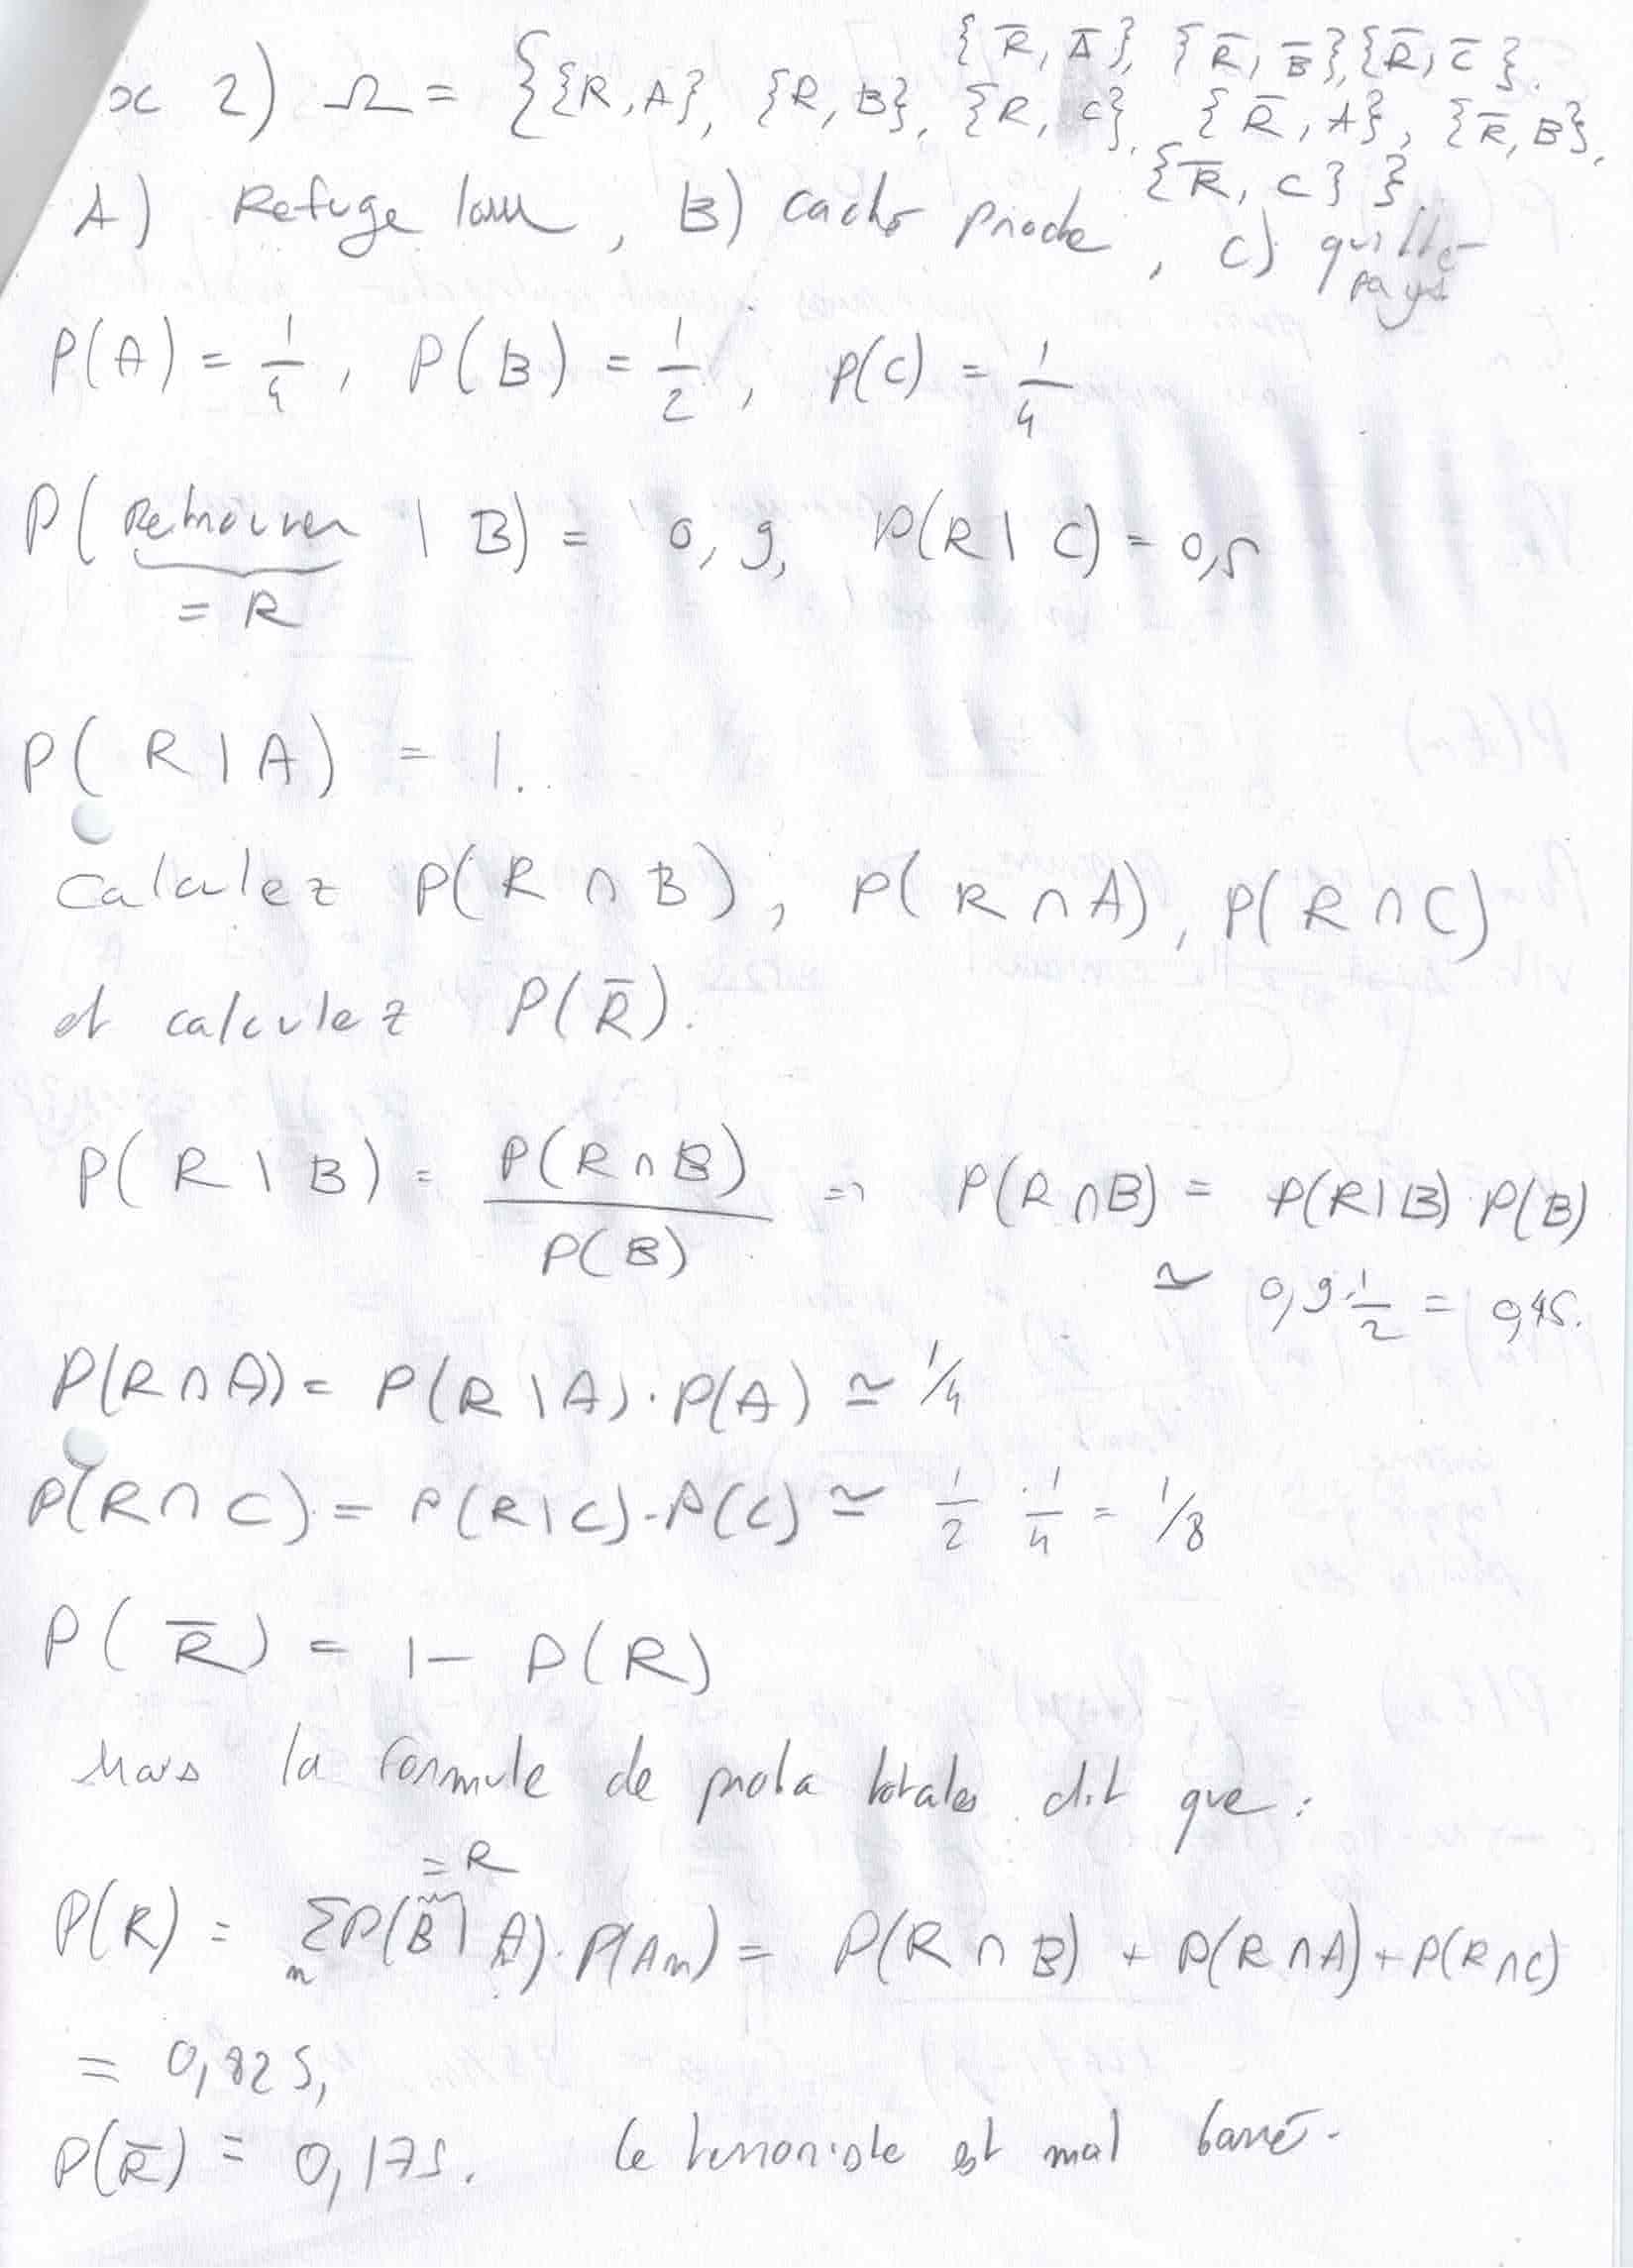 x 2) Ω = {{R,A}, {R,B}, {R,C}, {R̅,A}, {R̅,B},
{R̅,A̅}, {R̅,B̅}, {R̅,C̅}.
{R̅,C}}.
A) Refuge , B) cache proche, C) quitte
pays
P(A) = 1/4, P(B) = 1/2, P(C) = 1/4
P(Retrouver | B) = 0,9, P(R | C) = 0,5
= R
P(R | A) = 1.
Calculez P(R ∩ B), P(R ∩ A), P(R ∩ C)
et calculez P(R̅).
P(R | B) = P(R ∩ B)/P(B) => P(R ∩ B) = P(R | B) P(B)
≃ 0,9 · 1/2 = 0,45.
P(R ∩ A) = P(R | A) · P(A) ≃ 1/4
P(R ∩ C) = P(R | C) · P(C) ≃ 1/2 · 1/4 = 1/8
P(R̅) = 1 - P(R)
Mais la formule de proba totales dit que :
= R
P(R) = Σn P(B | A) · P(An) = P(R ∩ B) + P(R ∩ A) + P(R ∩ C)
= 0,825,
P(R̅) = 0,175. le terroriste est mal barré.